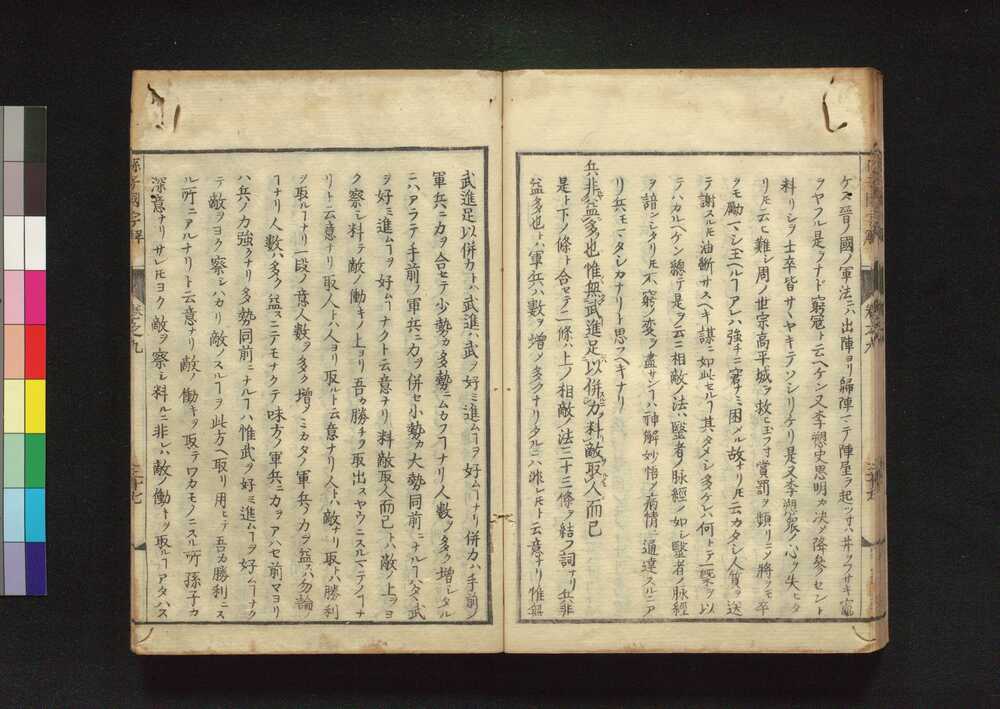 ケス晉ノ國ノ軍法ニハ出陣ヨリ歸陣マテ陣屋ヲ起ツ寸ハ井ヲフサキ竈
ヲヤフル是ヲナド窮寇ト云ヘケン又李愬史思明カ決メ降參セント
料リシヲ士卒皆サヽヤキテソシリケリ是又李愬衆ノ心ヲ失ヒタ
リ𪜈云ヒ難シ周ノ世宗高平城ヲ救ヒ玉フ寸賞罰ヲ頻リニメ將ヲモ卒
ヲモ勵マシ玉ヘルヿアレハ強チニ窘ミ困メル故ナリ𪜈云カタシ人質ヲ送
テ謝スル𪜈油斷サスヘキ謀ニ如此セルヿ其タメシ多ケレハ何トテ一槩ヲ以
テハカルヘケン總テ是ヲ云ニ相敵ノ法ハ毉者ノ脉經ノ如シ毉者ノ脉經
ヲ諳ンシタリ𪜈不窮ノ變ヲ盡サンヿハ神解妙悟メ病情ニ通達スルニア
リ兵モマタシカナリト思フヘキナリ
兵非益多也惟無武進足以併力料敵取人而已
是ト下ノ條ト合セテ二條ハ上ノ相敵ノ法三十三條ヲ結フ詞ナリ兵非
益多也トハ軍兵ハ數ヲ增メ多クナリタルニハ非レ𪜈ト云意ナリ惟無
武進足以併力トハ武進ハ武ヲ好ミ進ムヿヲ好ムヿナリ併力ハ手前ノ
軍兵ニ力ヲ合セテ少勢カ多勢ニムカフヿナリ人數ノ多ク增シタル
ニハアラテ手前ノ軍兵ニ力ヲ併セ小勢カ大勢同前ニナルヿハタヽ武
ヲ好ミ進ムヿヲ好ムヿナクト云意ナリ料敵取人而已トハ敵ノ上ヲヨ
ク察シ料テ敵ノ働キノ上ヨリ吾カ勝チヲ取出スヤウニスルマテノヿナ
リト云意ナリ取人トハ人ヨリ取ルト云意ナリ人トハ敵ナリ取トハ勝利
ヲ取ルヿナリ一段ノ意人數ヲ多ク增メミカタノ軍兵ノ力ヲ益スハ勿論
ノヿナリ人數ハ多ク益スニテモナクテ味方ノ軍兵ニ力ヲアハセ前マヨリ
ハ兵ノ力強クナリ多勢同前ニナルヿハ惟武ヲ好ミ進ムヿヲ好ムヿナク
テ敵ヲヨク察シハカリ敵ノスルヿヲ此方ヘ取リ用ヒテ吾カ勝利ニス
ル所ニアルナリト云意ナリ敵ノ働キヲ取テワカモノニスル所孫子カ
深意ナリサレ𪜈ヨク敵ヲ察シ料ルニ非レハ敵ノ働キヲ取ルヿアタハス
孫子國字解
卷之九